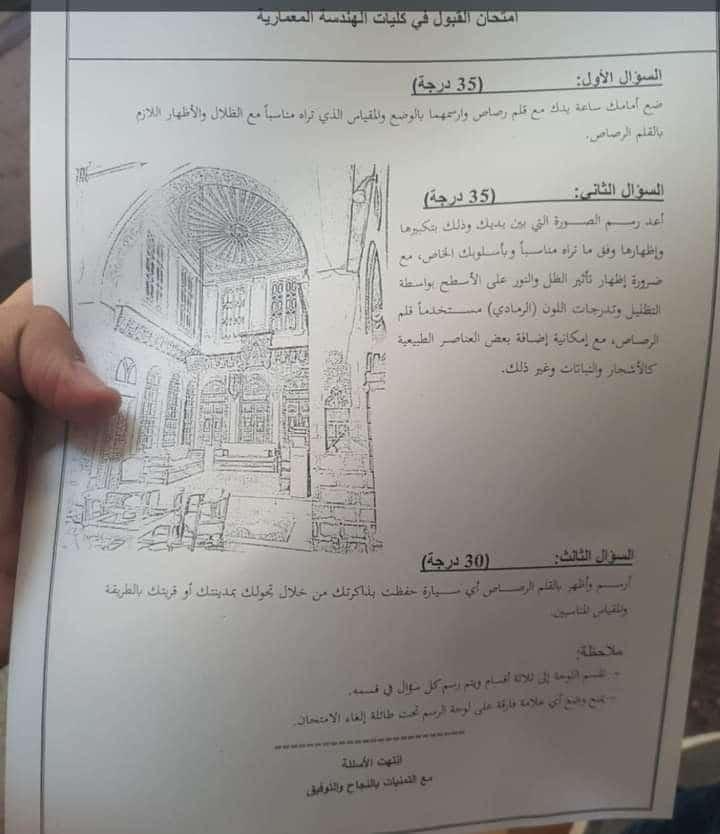 امتحان القبول في كليات الهندسة المعمارية
السؤال الأول: (35 درجة)
ضع أمامك ساعة يدك مع قلم رصاص وارسمهما بالوضع والمقياس الذي تراه مناسباً مع الظلال والأظهار اللازم
بالقلم الرصاص.
السؤال الثاني: (35 درجة)
أعد رسم الصورة التي بين يديك وذلك بتكبيرها
وإظهارها وفق ما تراه مناسباً وبأسلوبك الخاص، مع
ضرورة إظهار تأثير الظل والنور على الأسطح بواسطة
التظليل وتدرجات اللون (الرمادي) مستخدماً قلم
الرصاص، مع إمكانية إضافة بعض العناصر الطبيعية
كالأشجار والنباتات وغير ذلك.
السؤال الثالث: (30 درجة)
أرسم وأظهر بالقلم الرصاص أي سيارة حفظت بذاكرتك من خلال تجولك بمدينتك أو قريتك بالطريقة
والمقياس المناسبين.
ملاحظة:
- تقسم اللوحة إلى ثلاثة أقسام ويتم رسم كل سؤال في قسمه.
- يمنع وضع أي علامة فارقة على لوحة الرسم تحت طائلة إلغاء الامتحان.
انتهت الأسئلة
مع التمنيات بالنجاح والتوفيق